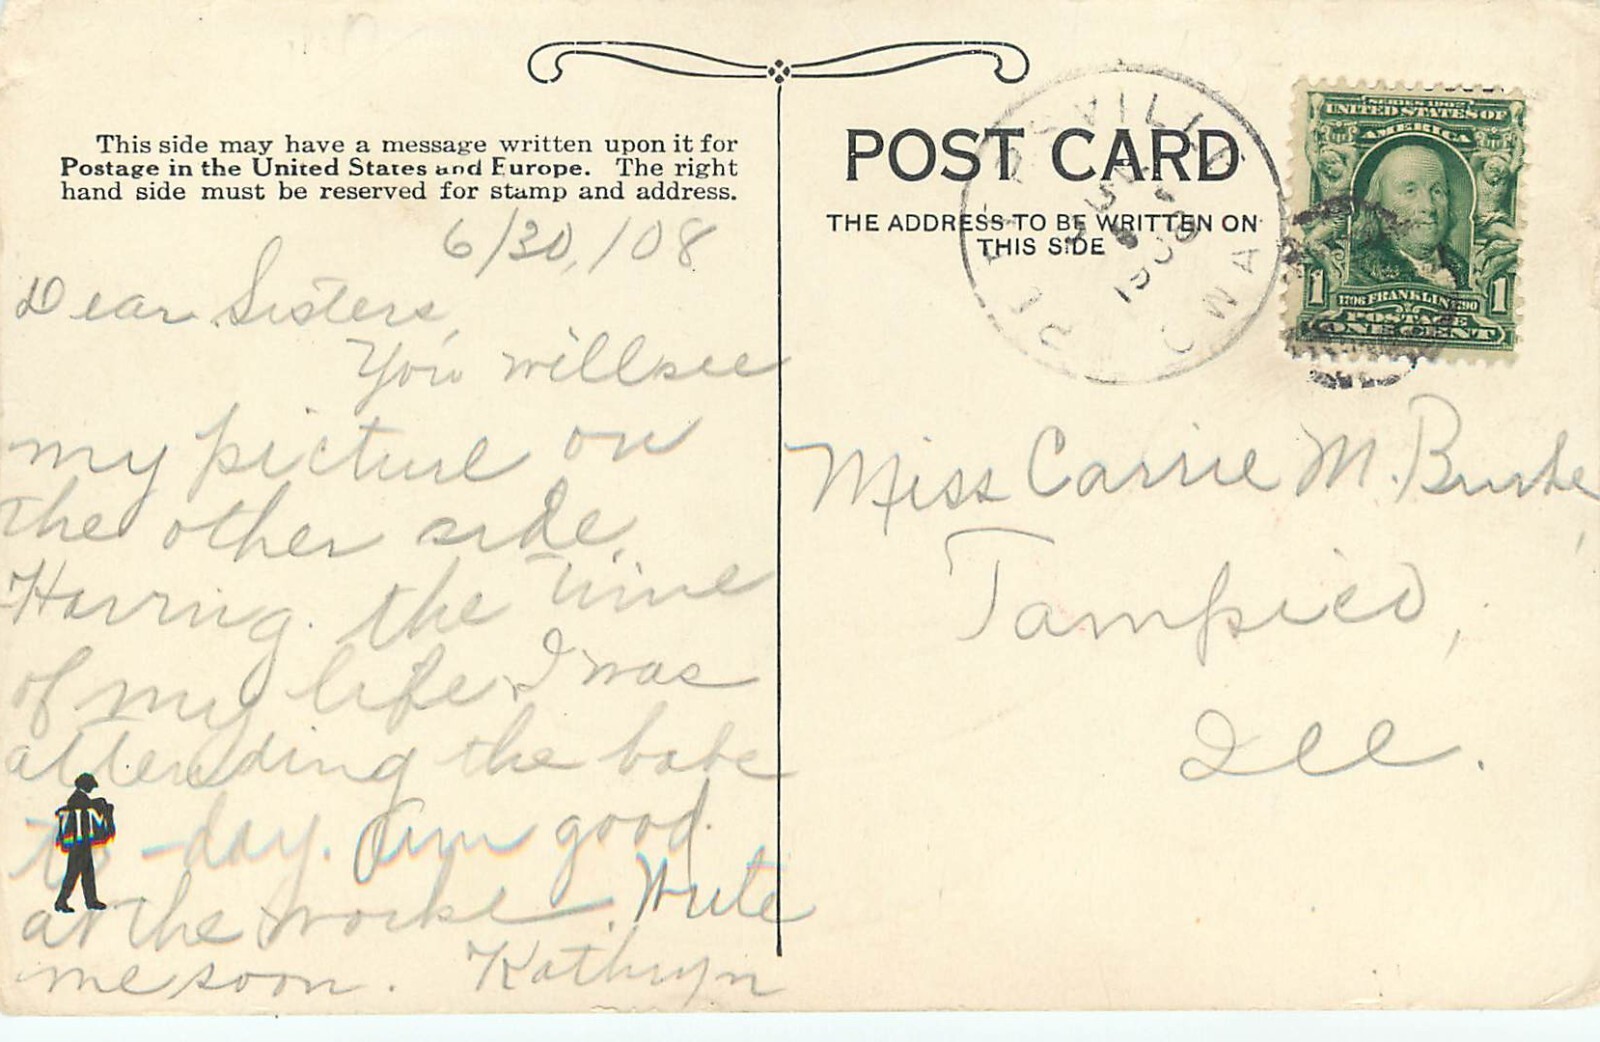 This side may have a message written upon it for
Postage in the United States and Europe. The right
hand side must be reserved for stamp and address.
6/30,/08
Dear Sisters,
You will see
my picture on
the other side.
Having the time
of my life. I was
attending the babe
to-day. Am good
at the worke. Write
me soon. Kathryn
ZIM
POST CARD
THE ADDRESS TO BE WRITTEN ON
THIS SIDE
1908
IOWA
SERIES 1902
UNITED STATES OF
AMERICA
1 1
1706 FRANKLIN 1790
POSTAGE
ONE CENT
Miss Carrie M. Burke,
Tampico,
Ill.